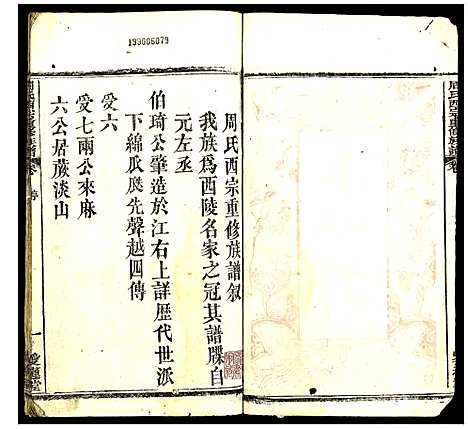 193606079
周氏西宗重修族譜叙
我族爲西陵名家之冠其譜牒自
元左丞
伯琦公肇造於江右上詳歷代世派
下綿瓜瓞先聲越四傳
受六
受七兩公來麻
六公居蕨淡山
周氏西宗重修族譜 卷
一
愛蓮堂
周氏西宗重修族譜 卷